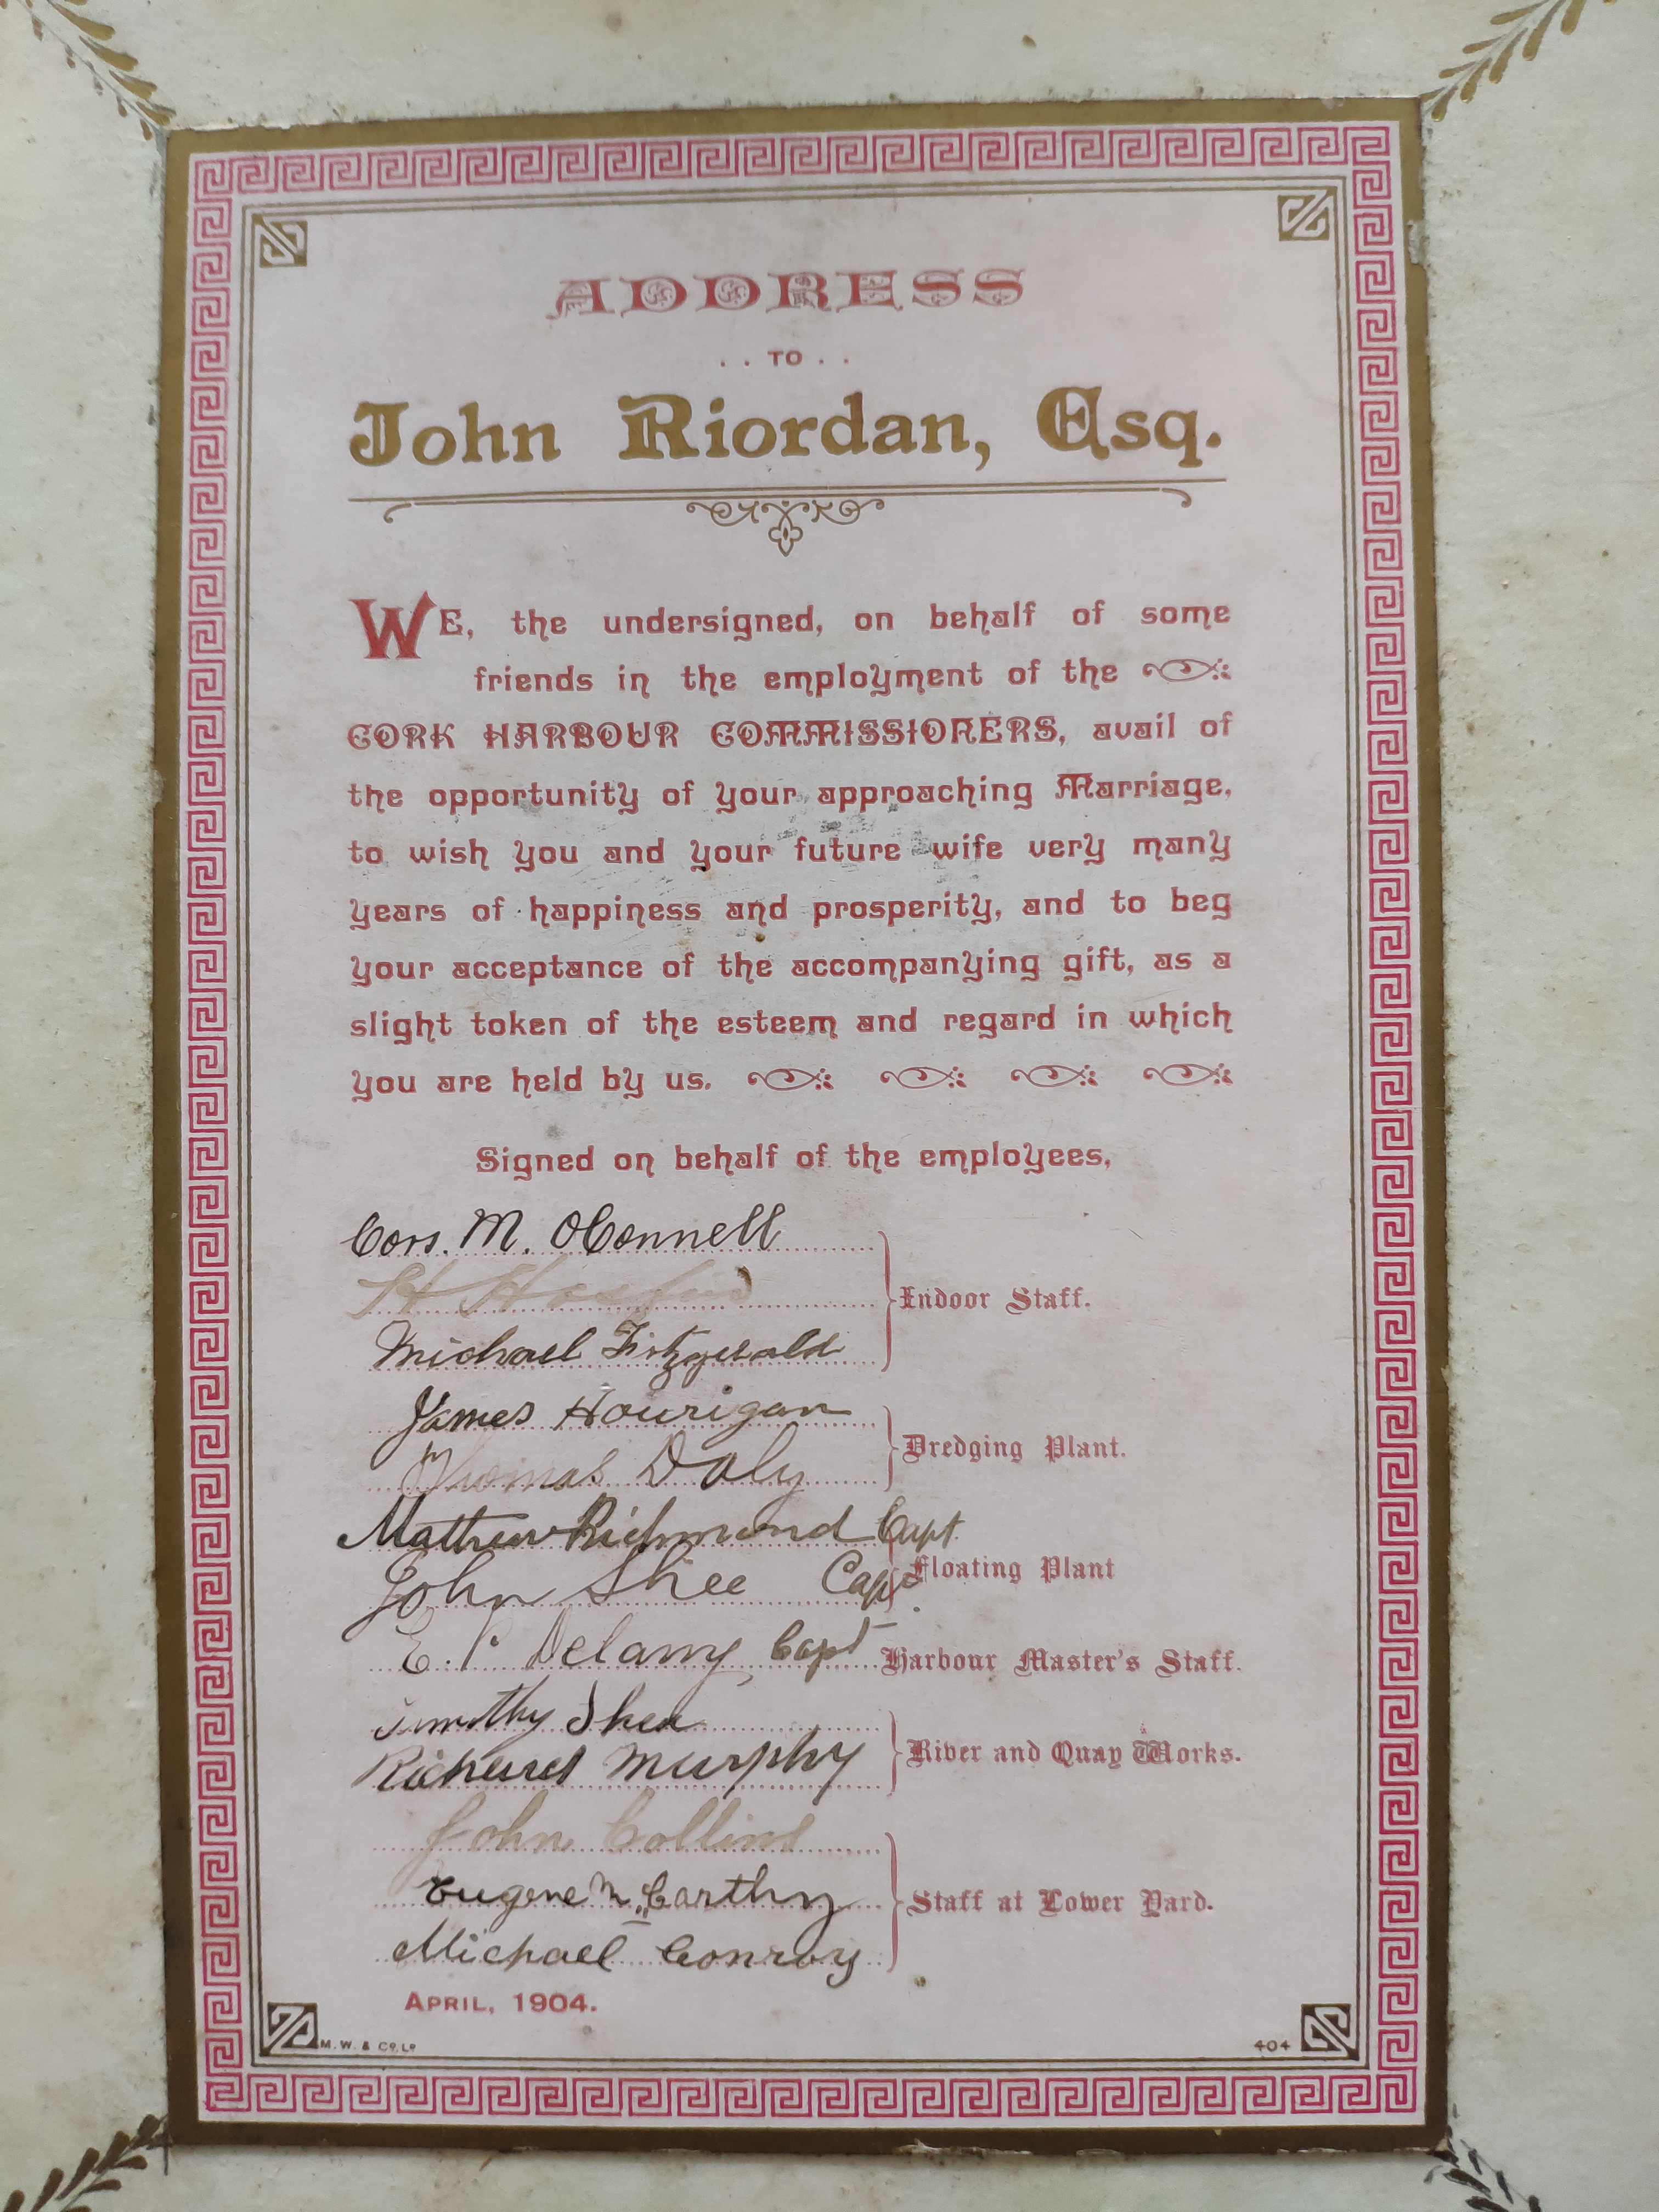 ADDRESS
. . TO . .
John Riordan, Esq.
WE, the undersigned, on behalf of some
friends in the employment of the
CORK HARBOUR COMMISSIONERS, avail of
the opportunity of your approaching Marriage,
to wish you and your future wife very many
years of happiness and prosperity, and to beg
your acceptance of the accompanying gift, as a
slight token of the esteem and regard in which
you are held by us.
Signed on behalf of the employees,
Cors. M. OConnell
H
Indoor Staff.
Michael Fitzgerald
James Hourigan
Dredging Plant.
Thomas Daly
Mathew Richmond Capt.
Floating Plant
John Shee Capt.
E. P. Delany, Capt Harbour Master's Staff.
Timothy Shea
River and Quay Works.
Richard Murphy
John Collins
Eugene McCarthy
Staff at Lower Yard.
Michael Conroy
APRIL, 1904.
M. W. & Co. Ld
404